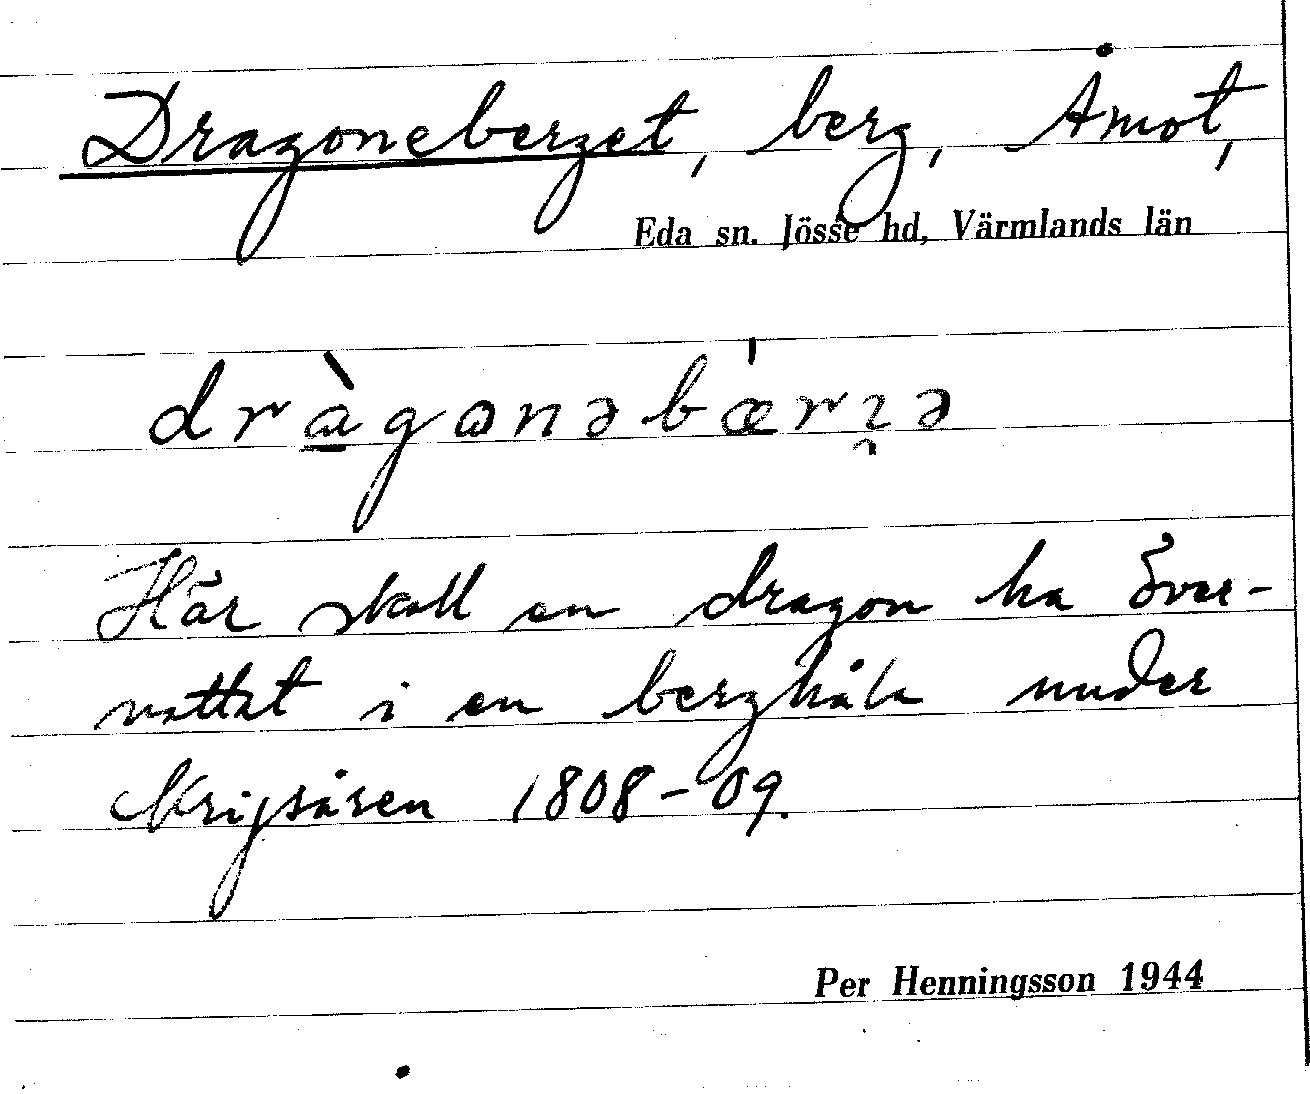 Dragoneberget, berg, Åmot,
Eda sn. Jösse hd, Värmlands län
dràgonəbærɩ̯ə
Här skall en dragon ha över-
nattat i en berghåla under
Krigsåren 1808-09.
Per Henningsson 1944